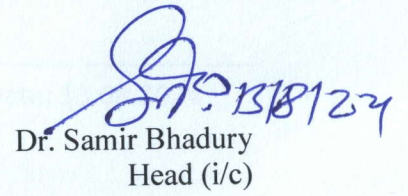 13/8/24
Dr. Samir Bhadury
Head (i/c)